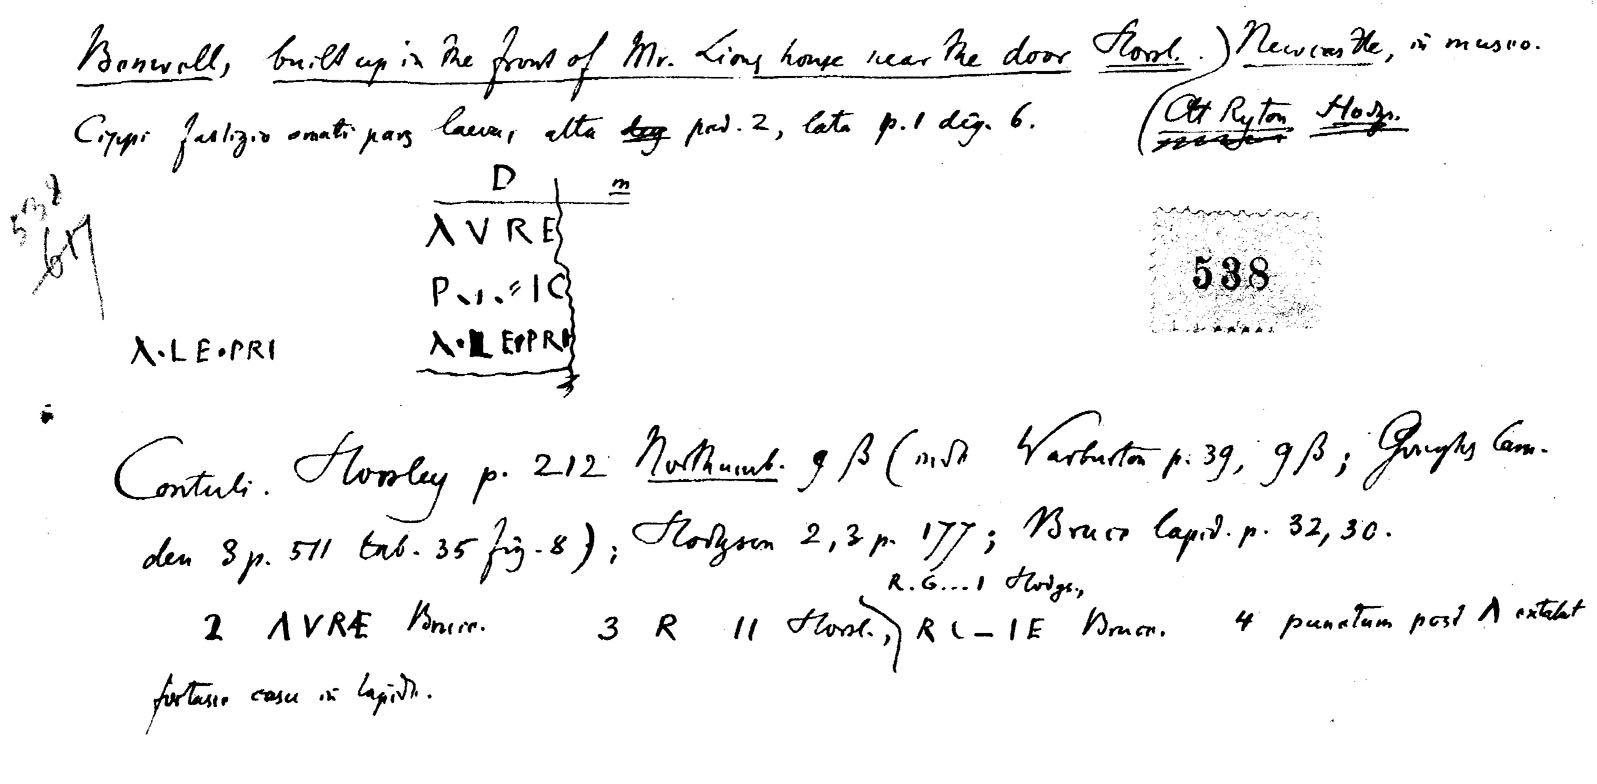 Benwell, built up in the front of Mr. Lions house near the door Horsl.) Newcastle, in museo.
Cippi fastigio ornati pars laeva, alta ped. 2, lata p. 1 dig. 6. (At Ryton Hodgs.
D m
538
617
ΛVRE
538
P IC
Λ·LE·PRI Λ·LE·PRI
Contuli. Horsley p. 212 Northumb. 9 β (inde Warburton p. 39, 9 β; Goughs Cam-
den 3 p. 511 tab. 35 fig. 8); Hodgson 2, 3 p. 177; Bruce lapid. p. 32, 30.
R.G...I Hodgs.,
2 ΛVRÆ Bruce. 3 R II Horsl., R C – IE Bruce. 4 punctum post Λ extabat
fortasse casu in lapide.